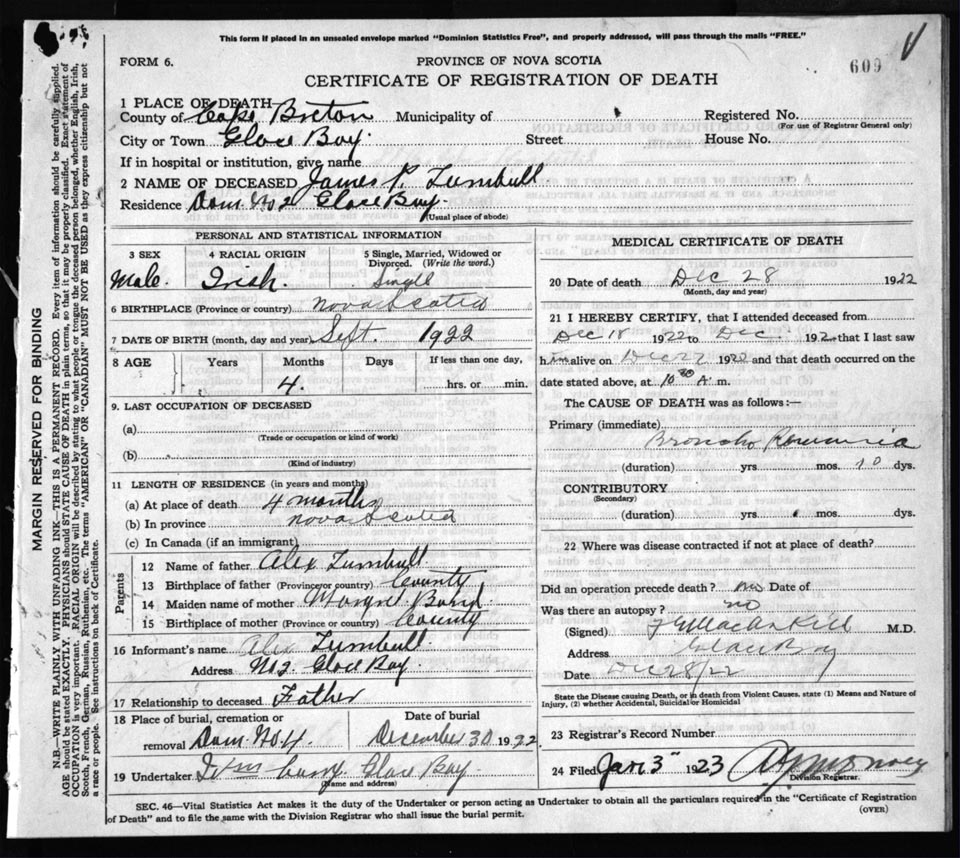 This form if placed in an unsealed envelope marked "Dominion Statistics Free", and properly addressed, will pass through the mails "FREE."
FORM 6.
PROVINCE OF NOVA SCOTIA
609
CERTIFICATE OF REGISTRATION OF DEATH
1 PLACE OF DEATH
County of Cape Breton Municipality of Registered No.
(For use of Registrar General only)
City or Town Glace Bay. Street House No.
If in hospital or institution, give name
2 NAME OF DECEASED James P. Turnbull
Residence Dom. No 2 Glace Bay.
(Usual place of abode)
PERSONAL AND STATISTICAL INFORMATION
3 SEX 4 RACIAL ORIGIN 5 Single, Married, Widowed or Divorced (Write the word.)
Male. Irish. Single
6 BIRTHPLACE (Province or country) Nova Scotia
7 DATE OF BIRTH (month, day and year) Sept. 1922
8 AGE Years Months Days If less than one day,
4. hrs. or min.
9. LAST OCCUPATION OF DECEASED
(a)
(Trade or occupation or kind of work)
(b)
(Kind of industry)
11 LENGTH OF RESIDENCE (in years and months)
(a) At place of death 4 months
(b) In province Nova Scotia
(c) In Canada (if an immigrant)
Parents
12 Name of father Alex Turnbull
13 Birthplace of father (Province or country) County
14 Maiden name of mother Margret
15 Birthplace of mother (Province or country) County
16 Informant's name Alex Turnbull
Address No 2. Glace Bay.
17 Relationship to deceased Father
18 Place of burial, cremation or removal Dom. No 4. Date of burial December 30 1922
19 Undertaker Curry Glace Bay.
(Name and address)
MEDICAL CERTIFICATE OF DEATH
20 Date of death Dec 28 1922
(Month, day and year)
21 I HEREBY CERTIFY, that I attended deceased from
Dec 18 1922 to Dec. 192 that I last saw
him alive on Dec 27 1922 and that death occurred on the
date stated above, at 10 30 A. m.
The CAUSE OF DEATH was as follows:—
Primary (immediate)
Broncho Pneumonia
(duration) yrs. mos. 10 dys.
CONTRIBUTORY
(Secondary)
(duration) yrs. mos. dys.
22 Where was disease contracted if not at place of death?
Did an operation precede death? no Date of
Was there an autopsy? no
(Signed) M.D.
Address Glace Bay
Date Dec 28/22
State the Disease causing Death, or in death from Violent Causes, state (1) Means and Nature of Injury, (2) whether Accidental, Suicidal or Homicidal
23 Registrar's Record Number
24 Filed Jan 3 1923
Division Registrar.
SEC. 46—Vital Statistics Act makes it the duty of the Undertaker or person acting as Undertaker to obtain all the particulars required in the "Certificate of Registration
of Death" and to file the same with the Division Registrar who shall issue the burial permit.
(OVER)
MARGIN RESERVED FOR BINDING
N.B.—WRITE PLAINLY WITH UNFADING INK—THIS IS A PERMANENT RECORD. Every item of information should be carefully supplied.
AGE should be stated EXACTLY. PHYSICIANS should STATE CAUSE OF DEATH in plain terms, so that it may be properly classified. Exact statement of
OCCUPATION is very important. RACIAL ORIGIN will be described by stating to what people or tongue the deceased person belonged, whether English, Irish,
Scotch, French, German, Russian, Ruthenian, etc. The terms "AMERICAN" or "CANADIAN" MUST NOT BE USED as they express citizenship but not
a race or people. See instructions on back of Certificate.